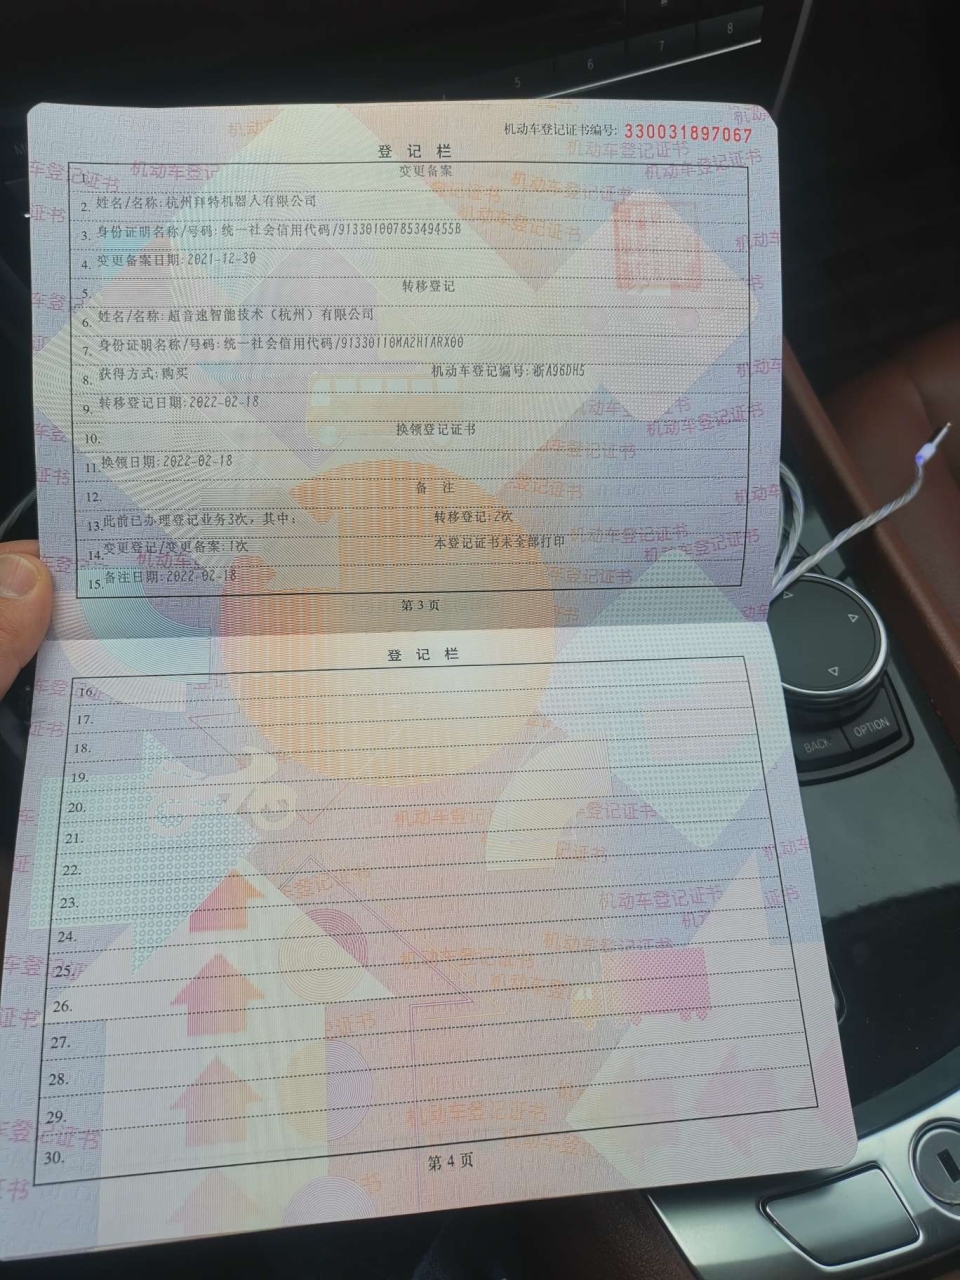 机动车登记证书编号: 330031897067
登 记 栏
1. 变更备案
2. 姓名/名称:杭州拜特机器人有限公司
3. 身份证明名称/号码:统一社会信用代码/91330100785349455B
4. 变更备案日期:2021-12-30
5. 转移登记
6. 姓名/名称:超音速智能技术(杭州)有限公司
7. 身份证明名称/号码:统一社会信用代码/91330110MA2H1ARX00
8. 获得方式:购买 机动车登记编号:浙A96DH5
9. 转移登记日期:2022-02-18
10. 换领登记证书
11. 换领日期:2022-02-18
12. 备 注
13. 此前已办理登记业务3次, 其中: 转移登记:2次
14. 变更登记/变更备案:1次 本登记证书未全部打印
15. 备注日期:2022-02-18
第 3 页
登 记 栏
16.
17.
18.
19.
20.
21.
22.
23.
24.
25.
26.
27.
28.
29.
30.
第 4 页
5
6
7
8
BACK
OPTION